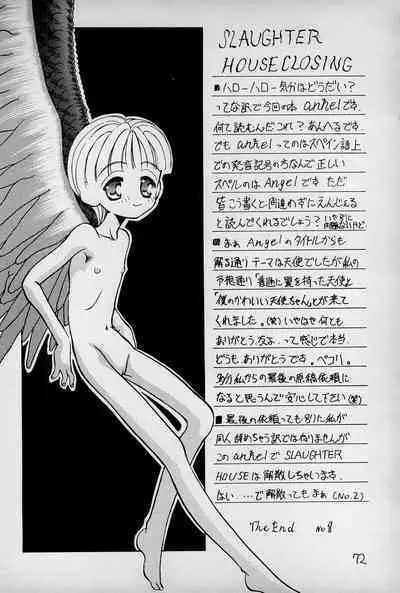 SLAUGHTER
HOUSE CLOSING
■ハローハロー気分はどうだい?
ってな訳で今回の本 anhelです。
何て読むんだこれ?あんへるです
でも anhelってのはスペイン語上
での発音記号のちなんで正しい
スペルのは Angelです ただ
皆こう書くと間違わずにえんじぇる
と読んでくれるでしょう?
■まぁ Angelのタイトルからも
解る通りテーマは天使でしたが私の
予想通り「普通に翼を持った天使」
「僕のかわいい天使ちゃん」とが来て
くれました。(笑)いやはや何とも
ありがとう友よ、って感じで本当、
どうも、ありがとうです。ペコリ。
多分私からの最後の原稿依頼に
なると思うんで安心して下さい(笑)
■最後の依頼っても別に私が
同人辞めちゃう訳ではねりませんが
この anhelで SLAUGHTER
HOUSEは解散しちゃいます。
はい……で解散ってもまぁ (No.2)
The End No 8
72